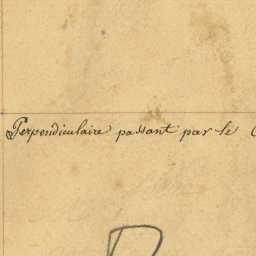 Perpendiculaire passant par le